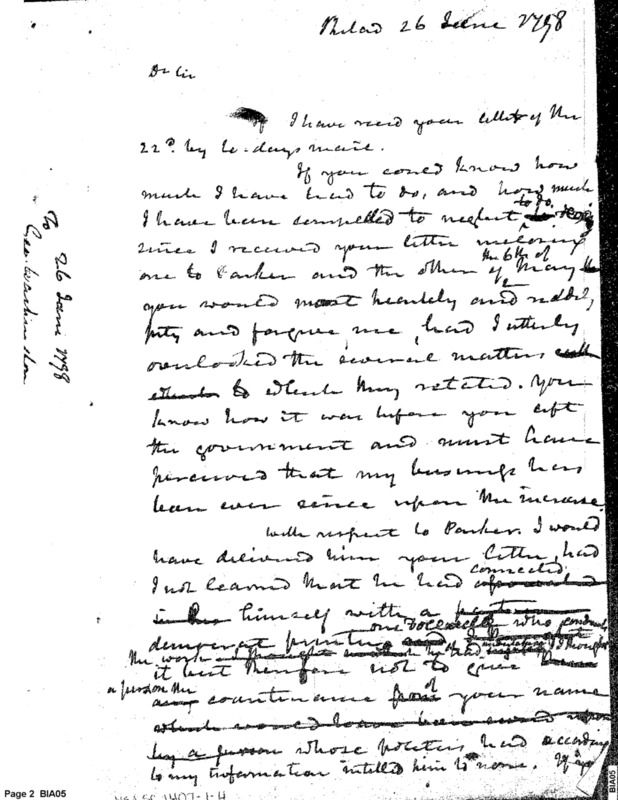 Philad 26 June 1798
Dr Sir
I have recd your letter of the
22d. by to-days mail.
If you could know how
much I have had to do, and how much
I have been compelled to neglect to do,
since I received your letter inclosing
one to Parker and the other of the 6th of May
you would most heartily and readily
pity and forgive me, had I utterly
overlooked the several matters
to which they related. You
know how it was before you left
the government and must have
perceived that my business has
been ever since upon the increase.
With respect to Parker. I would
have delivered him your letter, had
I not learned that he had connected
himself with a
democrat printing one Bicknell who
the work I thought
it best therefore not to give
a person the
countenance of your name
which would have been
by a person whose politics had according
to my information intitled him to none. If you
To
Gen. Washington
26 June 1798
Page 2 BIA05
BIA05